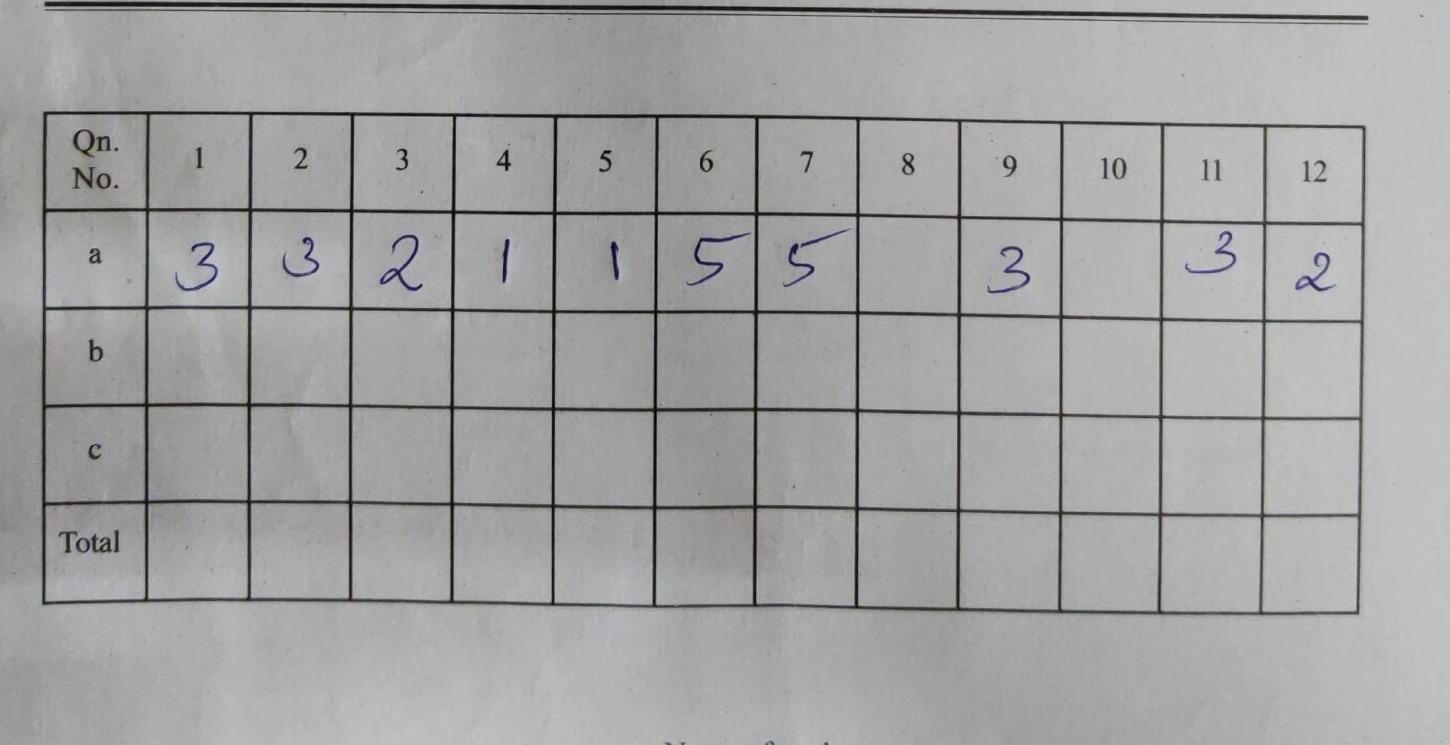 Qn. No. 1 2 3 4 5 6 7 8 9 10 11 12
a 3 3 2 1 1 5 5 3 3 2
b
c
Total